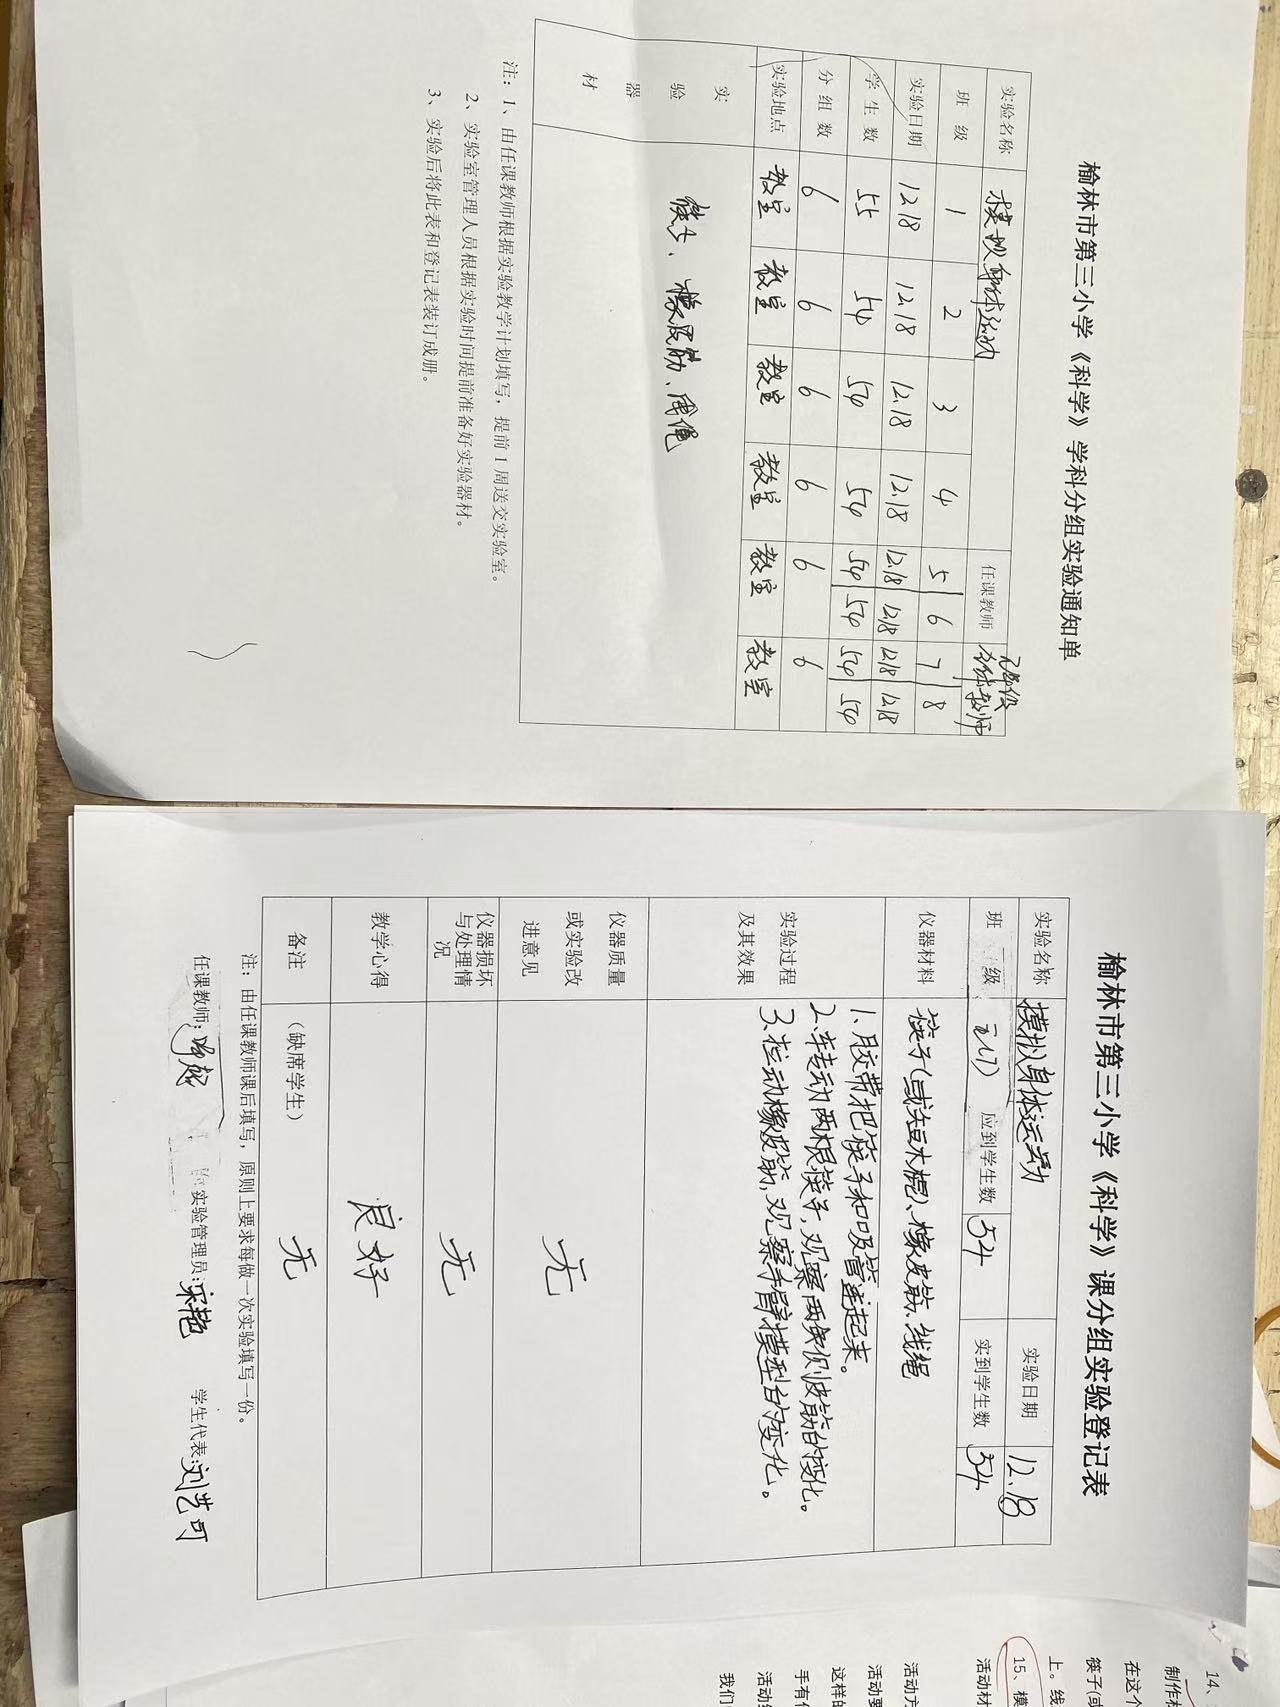 榆林市第三小学《科学》学科分组实验通知单
实验名称 模拟身体运动 任课教师
班级 1 2 3 4 5 6 7 8
实验日期 12.18 12.18 12.18 12.18 12.18 12.18 12.18 12.18
学生数 55 54 54 54 54 54 54 54
分组数 6 6 6 6 6 6
实验地点 教室 教室 教室 教室 教室 教室
实验器材 筷子、橡皮筋、
注：1、由任课教师根据实验教学计划填写，提前1周送交实验室。
2、实验室管理人员根据实验时间提前准备好实验器材。
3、实验后将此表和登记表装订成册。
榆林市第三小学《科学》课分组实验登记表
实验名称 模拟身体运动 实验日期 12.18
班级 应到学生数 54 实到学生数 54
仪器材料 筷子(或短木棍)、橡皮筋、线绳
实验过程及其效果
1、胶带把筷子和吸管连起来。
2、转动两根筷子,观察两侧皮筋的变化。
3、拉动橡皮筋,观察手臂模型的变化。
仪器质量或实验改进意见 无
仪器损坏与处理情况 无
教学心得 良好
备注 (缺席学生) 无
注：由任课教师课后填写，原则上要求每做一次实验填写一份。
任课教师: 实验管理员:宋艳 学生代表:刘艺可
14、
制作
在这个
筷子(或
上。线
15、模
活动材
活动方
活动要
这样的
手有什
活动结
我们